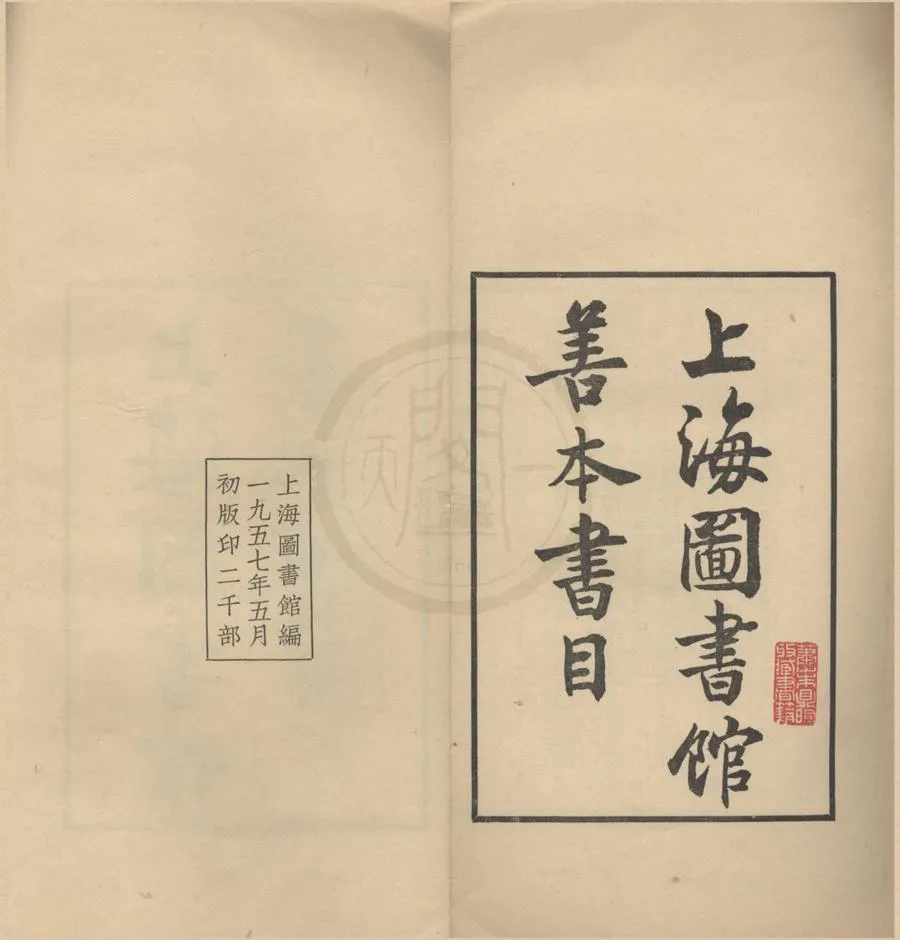 上海圖書館
善本書目
上海圖書館編
一九五七年五月
初版印二千部